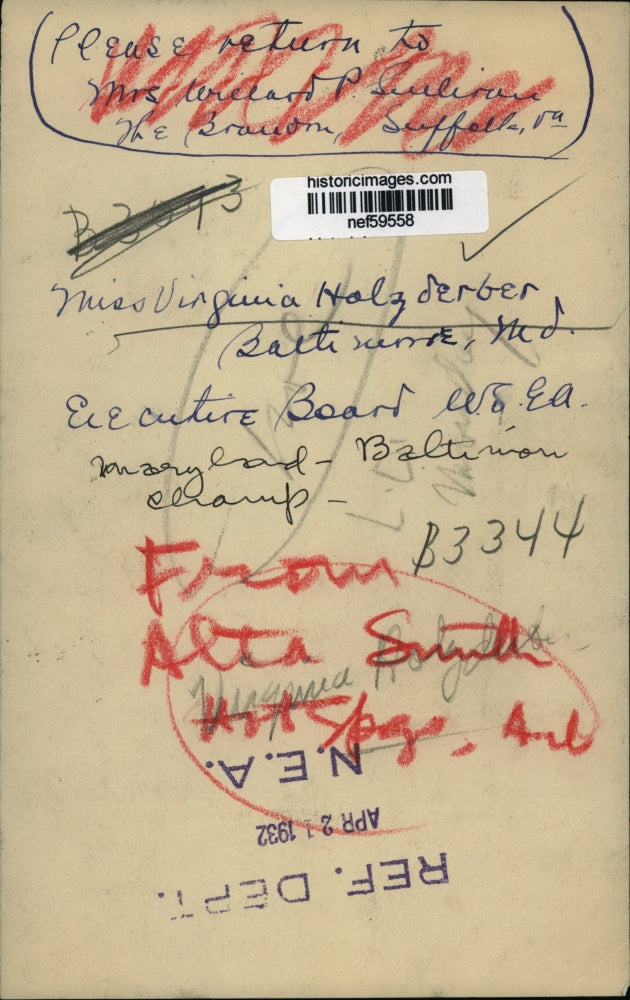 Please return to
Mrs Willard P. Sullivan
The Brandon, Suffolk, Va
historicimages.com
nef59558
Miss Virginia Holzderber
Baltimore, Md.
Executive Board W.S.G.A.
Maryland - Baltimore
champ -
B3344
From
Alta Smith
Virginia Holzderber
Hot Spgs, Ark
N.E.A.
APR 21 1932
REF. DEPT.